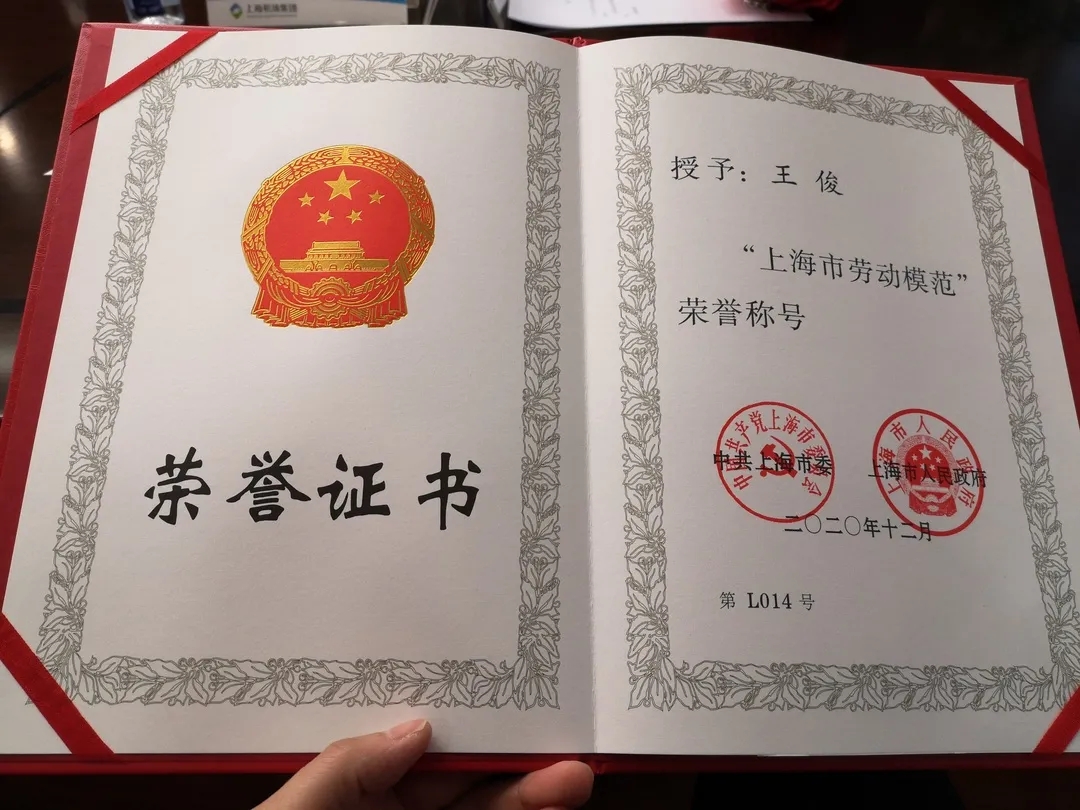 荣誉证书
授予：王俊
“上海市劳动模范”
荣誉称号
中国共产党上海市委员会
中共上海市委
上海市人民政府
上海市人民政府
二〇二〇年十二月
第 L014 号